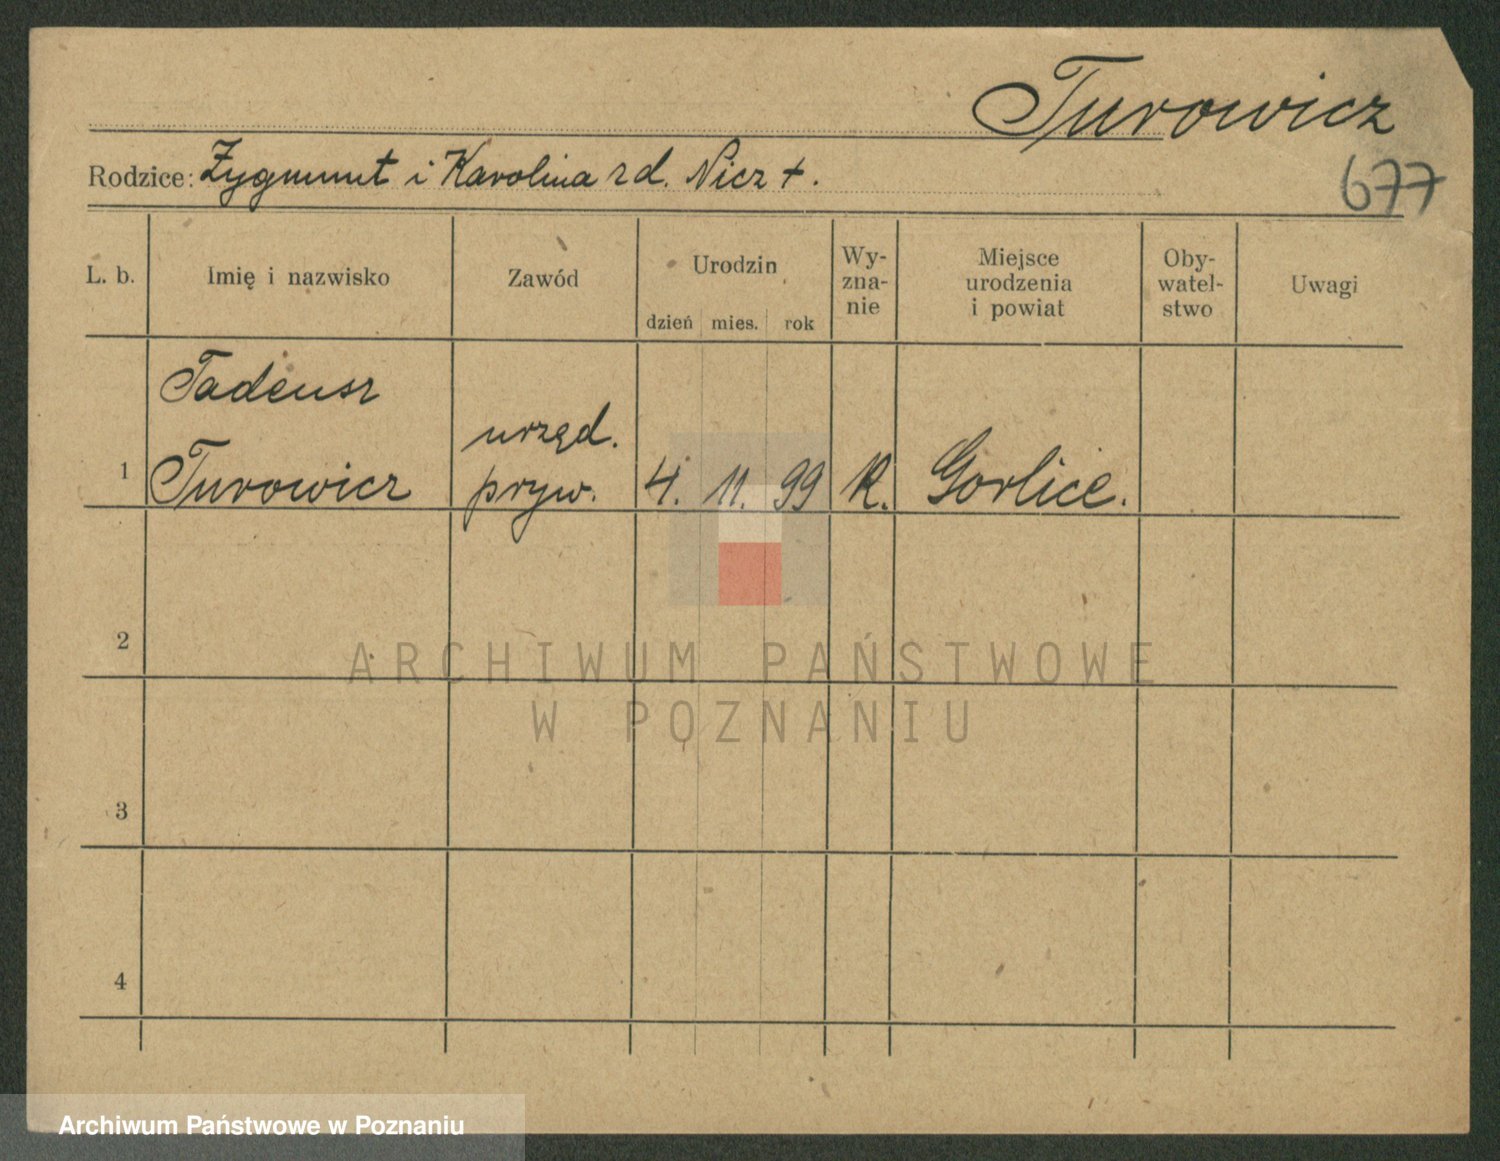 Turowicz
Rodzice: Zygmunt i Karolina zd. Nicz +.
677
L. b.
Imię i nazwisko
Zawód
Urodzin
dzień mies. rok
Wy-
zna-
nie
Miejsce
urodzenia
i powiat
Oby-
watel-
stwo
Uwagi
1
Tadeusz
Turowicz
urzęd.
pryw.
4. 11. 99
R.
Gorlice.
2
3
4
ARCHIWUM PAŃSTWOWE
W POZNANIU
Archiwum Państwowe w Poznaniu